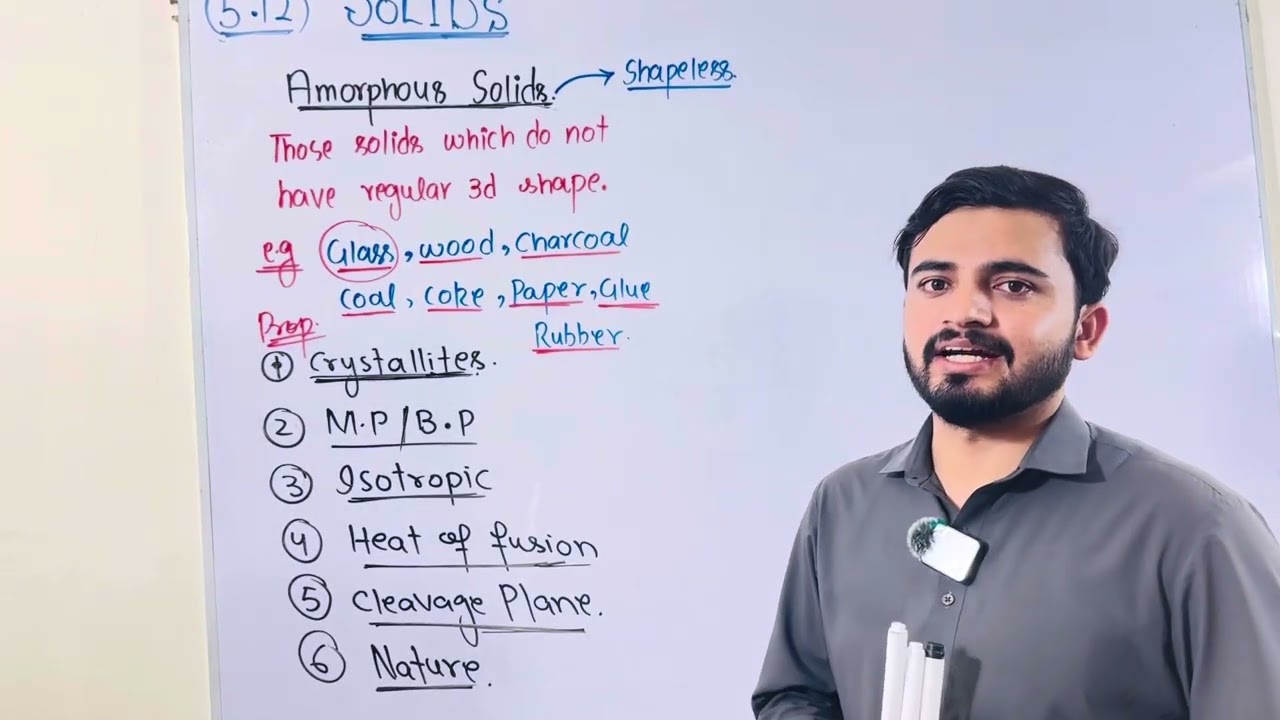 (5.12) SOLIDS
Amorphous Solids. → Shapeless.
Those solids which do not
have regular 3d shape.
e.g Glass, wood, Charcoal
Coal, Coke, Paper, Glue
Prop. Rubber.
① Crystallites.
② M.P/B.P
③ Isotropic
④ Heat of fusion
⑤ Cleavage Plane.
⑥ Nature.